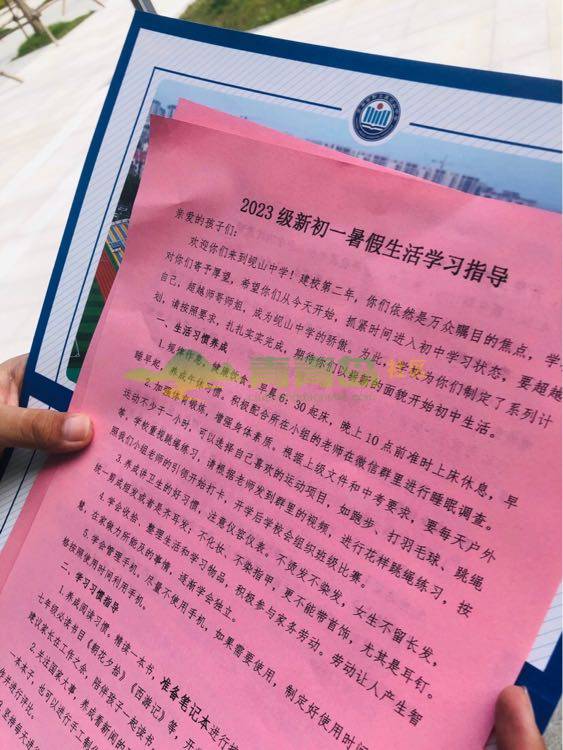 2023 级新初一暑假生活学习指导
亲爱的孩子们：
欢迎你们来到岘山中学！建校第二年，你们依然是万众瞩目的焦点，学
对你们寄予厚望，希望你们从今天开始，抓紧时间进入初中学习状态，要超越
自己，超越师哥师姐，成为岘山中学的骄傲。为此，学校为你们制定了系列计
划，请按照要求，扎扎实实完成，期待你们以崭新的面貌开始初中生活。
一、生活习惯养成
1.规律作息，30 起床，晚上 10 点前准时上床休息，早
睡早起，养成午休习惯，积极配合所在小组的老师在微信群里进行睡眠调查。
2.加强体育锻炼，增强身体素质。根据上级文件和中考要求，要每天户外
运动不少于一小时，可以选择自己喜欢的运动项目，如跑步、打羽毛球、跳绳
等，学校重视跳绳练习，请根据老师发到群里的视频，进行花样跳绳练习，按
照我们小组老师的引领开始打卡，开学后学校会组织班级比赛。
3.养成讲卫生的好习惯，注意仪容仪表。不烫发不染发，女生不留长发，
统一剪成短发或者是齐耳发；不化妆、不染指甲，更不能带首饰，尤其是耳钉。
4.学会收拾、整理生活和学习物品，积极参与家务劳动。劳动让人产生智
慧，在家做力所能及的事情，逐渐学会独立。
5.学会管理手机。尽量不使用手机，如果需要使用，制定好使用时间
格按照使用时间利用手机。
二、学习习惯指导
1.养成阅读习惯，精读一本书，准备笔记本进行
七年级必读书目《朝花夕拾》《西游记》等，开
建议家长在工作之余，陪伴孩子一起读书，
2.关注国家大事，养成看新闻的
一本本子，也可以进行手工制
作并进行评比。
3.坚持每天练
青青岛社区